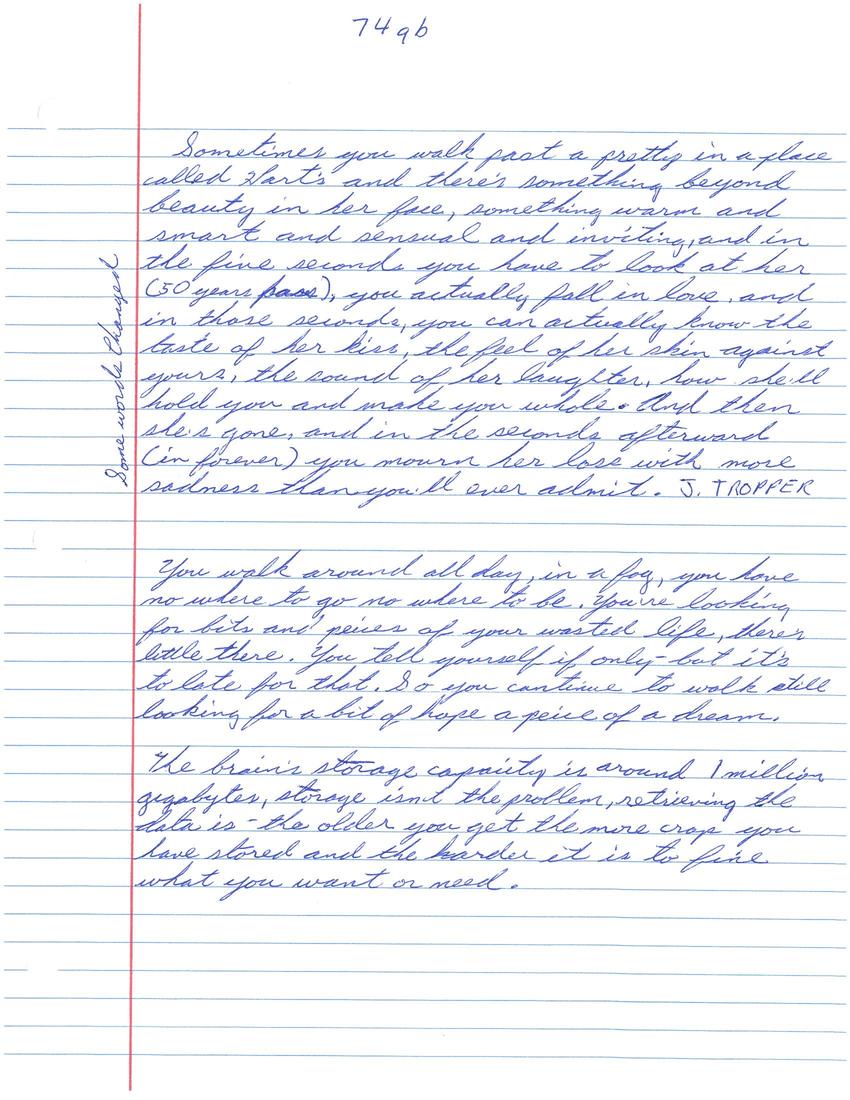 74 qb
Sometimes you walk past a pretty in a place
called Hart's and there's something beyond
beauty in her face, something warm and
smart and sensual and inviting, and in
the five seconds you have to look at her
(50 years pass), you actually fall in love, and
in those seconds, you can actually know the
taste of her kiss, the feel of her skin against
yours, the sound of her laughter, how she'll
hold you and make you whole. And then
she's gone, and in the seconds afterward
(in forever) you mourn her lose with more
sadness than you'll ever admit. J. TROPPER
Some words Changed
You walk around all day, in a fog, you have
no where to go no where to be. You're looking
for bits and peices of your wasted life, there's
little there. You tell yourself if only - but it's
to late for that. So you continue to walk still
looking for a bit of hope a peice of a dream.
The brain's storage capacity is around 1 million
gigabytes, storage isn't the problem, retrieving the
data is - the older you get the more crap you
have stored and the harder it is to fine
what you want or need.